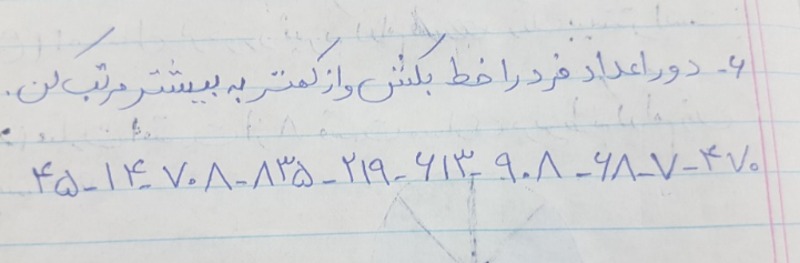 ۶- دور اعداد فرد را خط بکش و از کمتر به بیشتر مرتب کن.
۴۵-۱۴-۷۰۸-۸۳۵-۲۱۹-۶۱۳-۹۰۸-۶۸-۷-۴۷۰